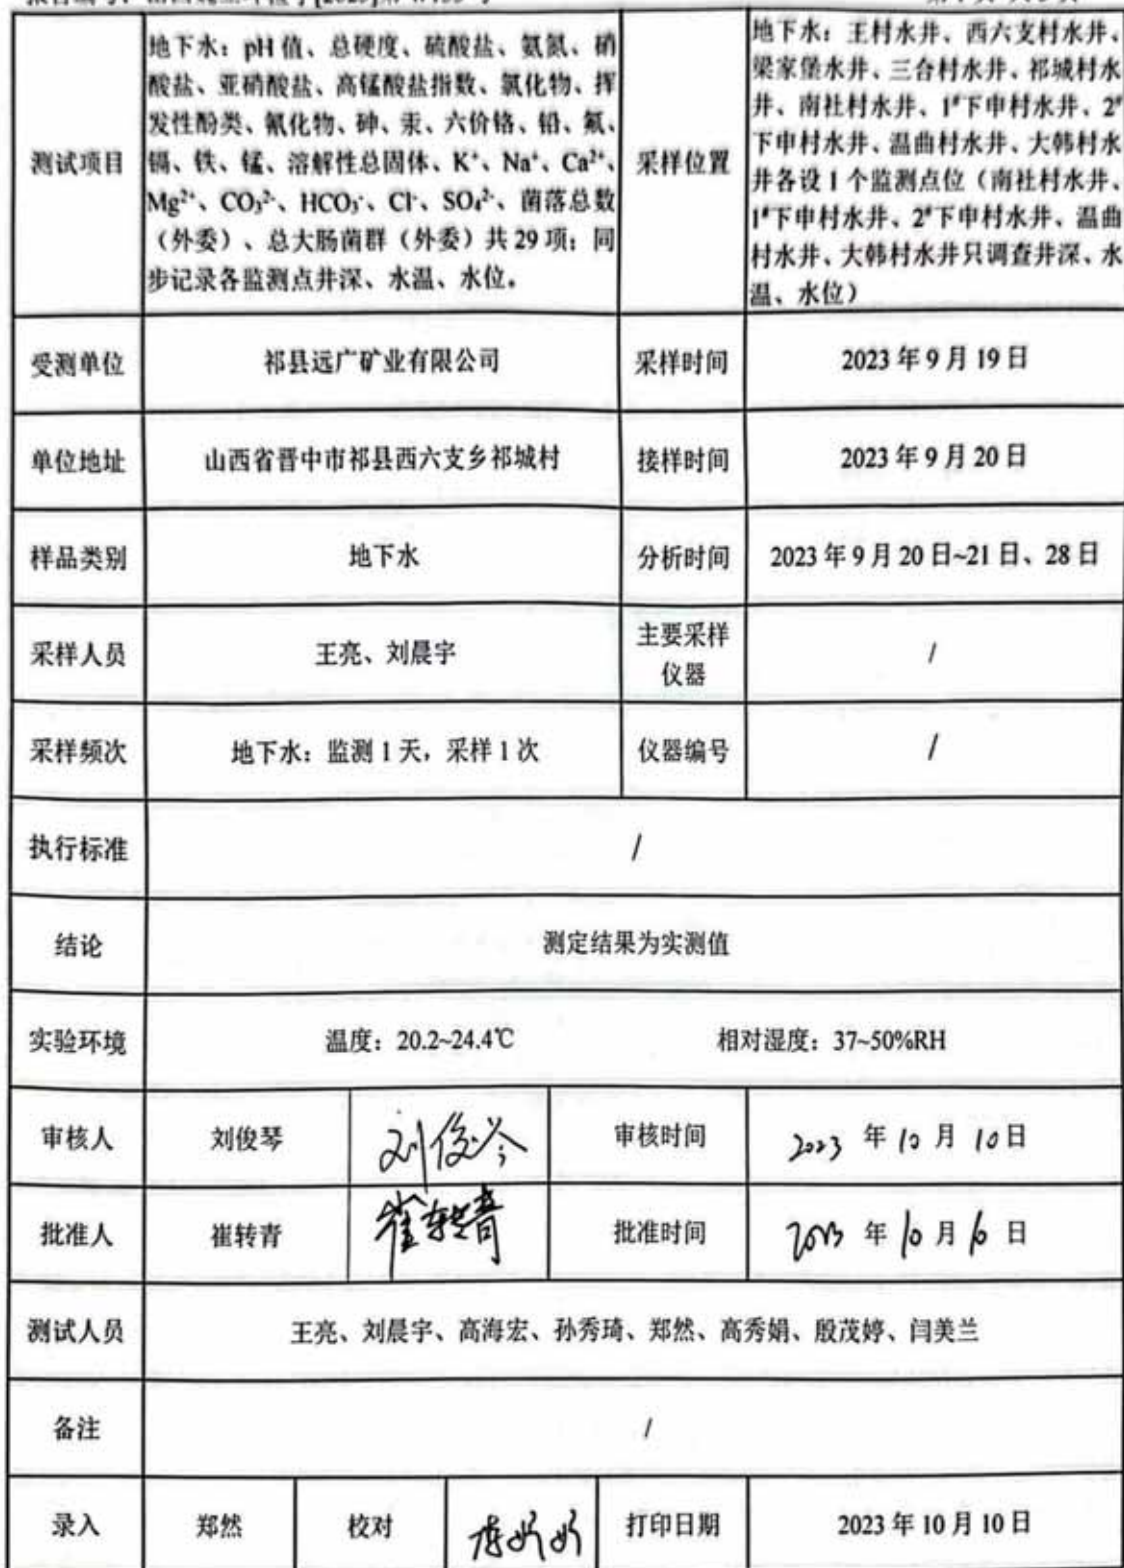 测试项目
地下水：pH 值、总硬度、硫酸盐、氨氮、硝
酸盐、亚硝酸盐、高锰酸盐指数、氯化物、挥
发性酚类、氰化物、砷、汞、六价铬、铅、氟、
镉、铁、锰、溶解性总固体、K⁺、Na⁺、Ca²⁺、
Mg²⁺、CO₃²⁻、HCO₃⁻、Cl⁻、SO₄²⁻、菌落总数
（外委）、总大肠菌群（外委）共 29 项；同
步记录各监测点井深、水温、水位。
采样位置
地下水：王村水井、西六支村水井、
梁家堡水井、三合村水井、祁城村水
井、南社村水井、1#下申村水井、2#
下申村水井、温曲村水井、大韩村水
井各设 1 个监测点位（南社村水井、
1#下申村水井、2#下申村水井、温曲
村水井、大韩村水井只调查井深、水
温、水位）
受测单位 祁县远广矿业有限公司 采样时间 2023 年 9 月 19 日
单位地址 山西省晋中市祁县西六支乡祁城村 接样时间 2023 年 9 月 20 日
样品类别 地下水 分析时间 2023 年 9 月 20 日~21 日、28 日
采样人员 王亮、刘晨宇 主要采样
仪器 /
采样频次 地下水：监测 1 天，采样 1 次 仪器编号 /
执行标准 /
结论 测定结果为实测值
实验环境 温度：20.2~24.4℃ 相对湿度：37~50%RH
审核人 刘俊琴 刘俊琴 审核时间 2023 年 10 月 10 日
批准人 崔转青 崔转青 批准时间 2023 年 10 月 10 日
测试人员 王亮、刘晨宇、高海宏、孙秀琦、郑然、高秀娟、殷茂婷、闫美兰
备注 /
录入 郑然 校对 打印日期 2023 年 10 月 10 日